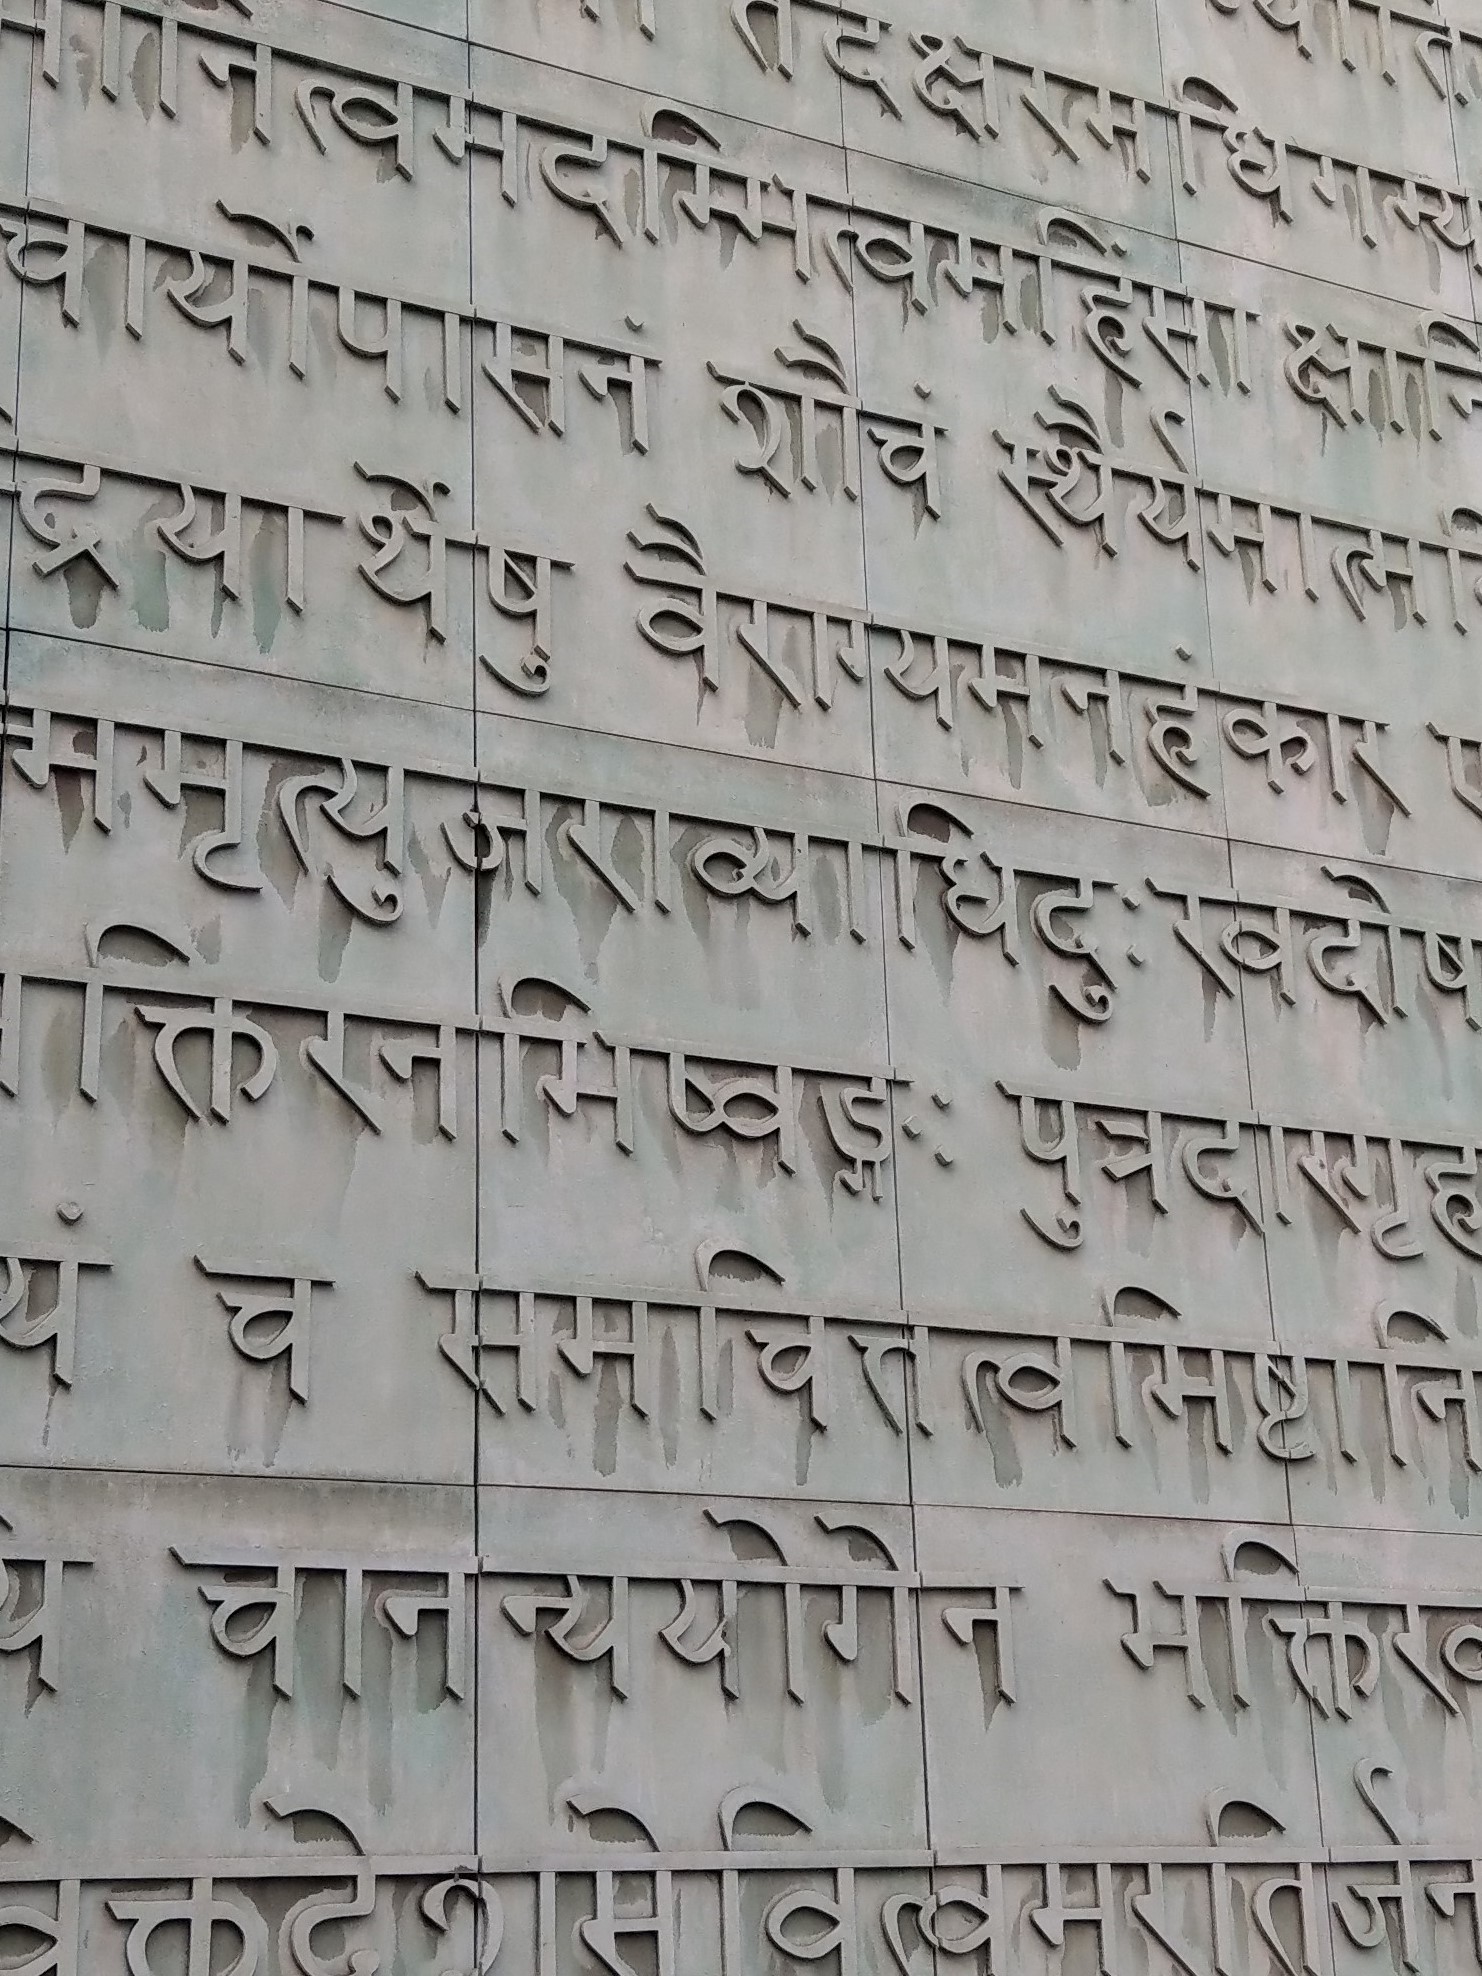 तदक्षरमधिगम्य
ानित्वमदम्भित्वमहिंसा क्षान्ति
चार्योपासनं शौचं स्थैर्यमात्मवि
द्रियार्थेषु वैराग्यमनहंकार ए
न्ममृत्युजराव्याधिदुःखदोष
क्तिरनभिष्वङ्गः पुत्रदारगृह
यं च समचित्तत्वमिष्टानि
य चानन्ययोगेन भक्तिरव
वक्तदेशसेवित्वमरतिर्जन